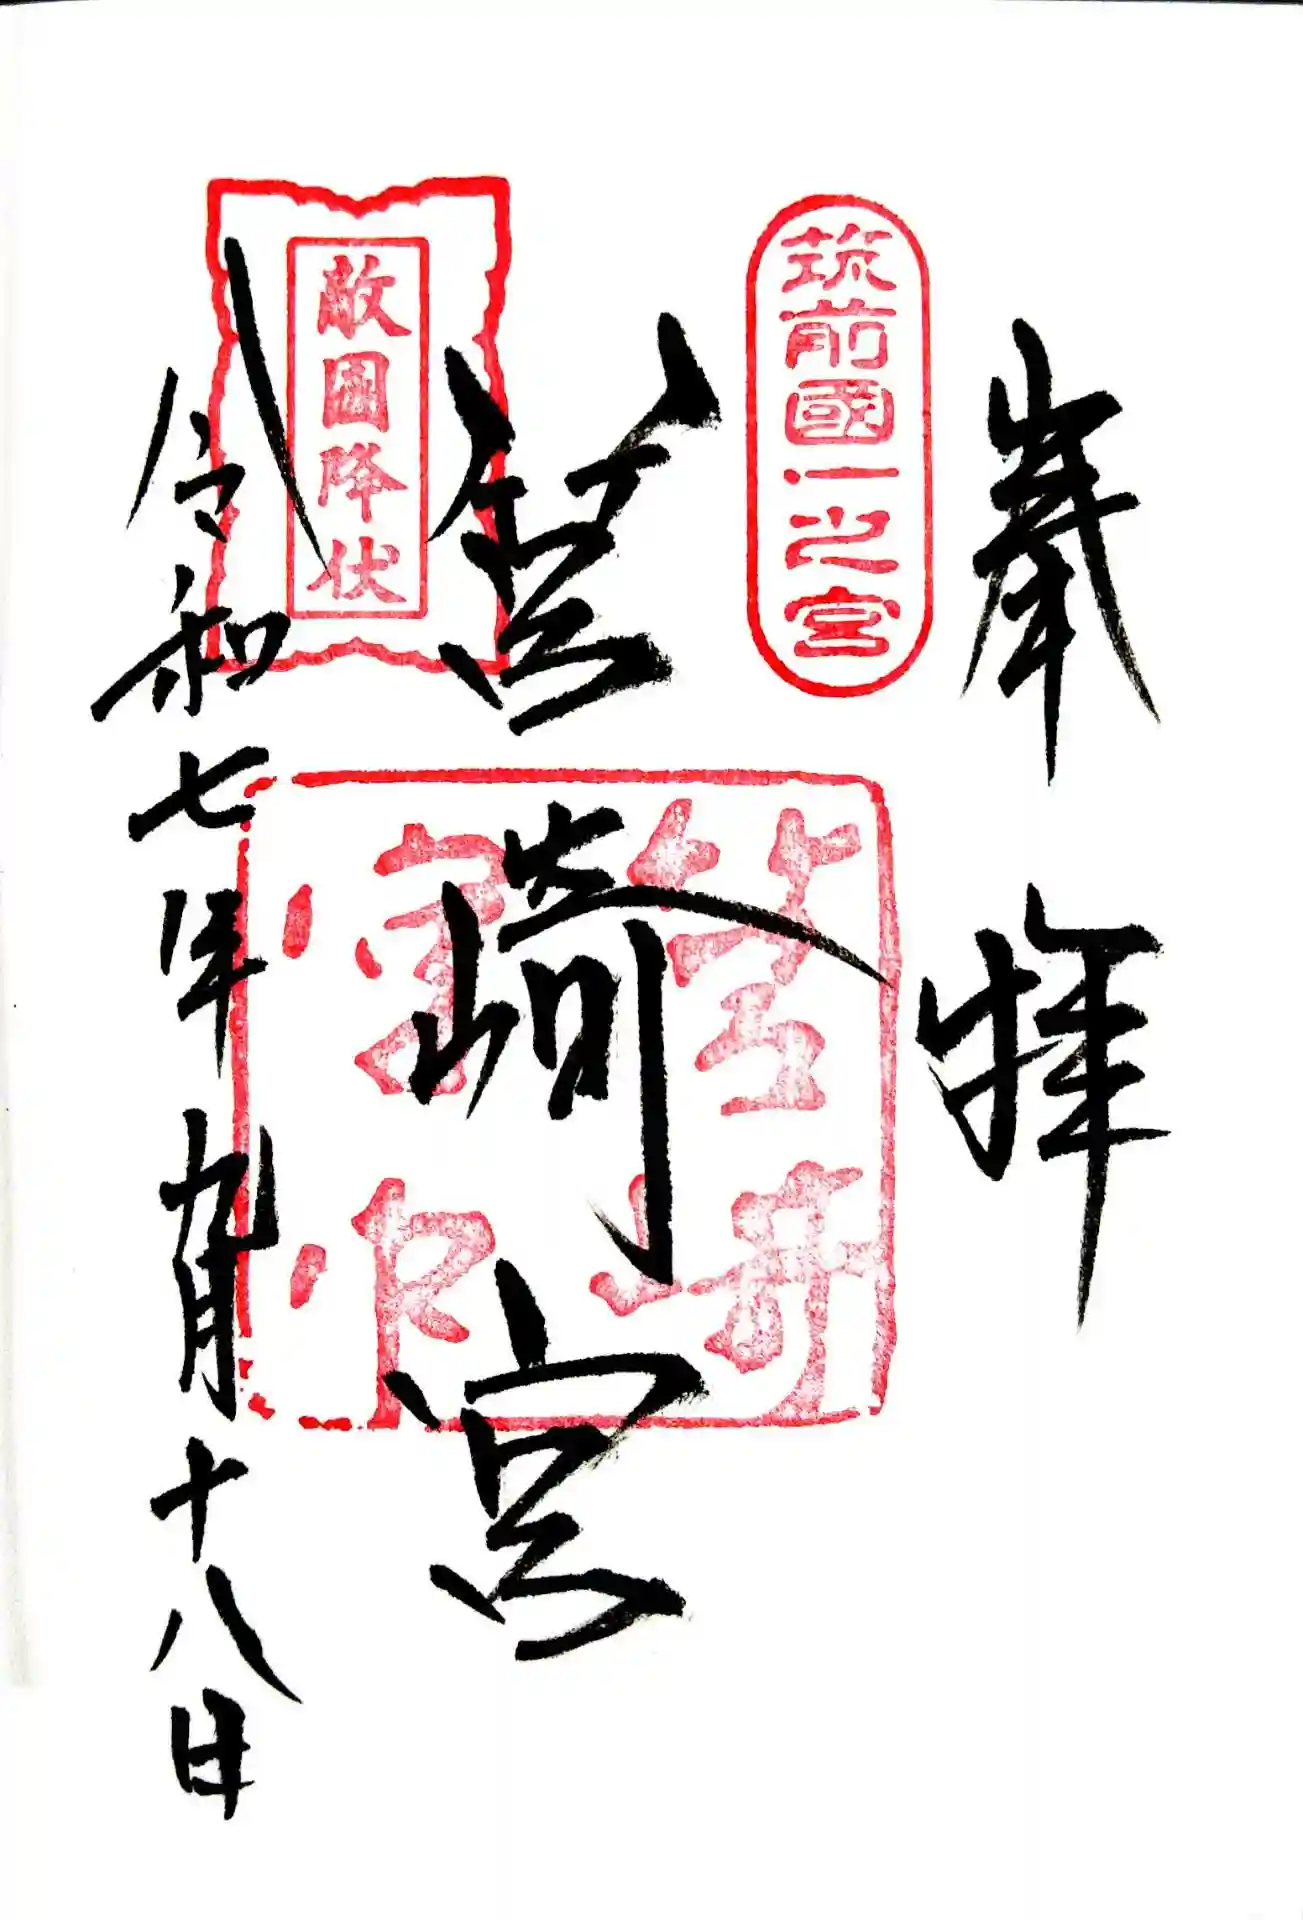 奉拝
筑前國一之宮
筥崎宮
筥崎宮印
敵國降伏
令和七年九月十八日